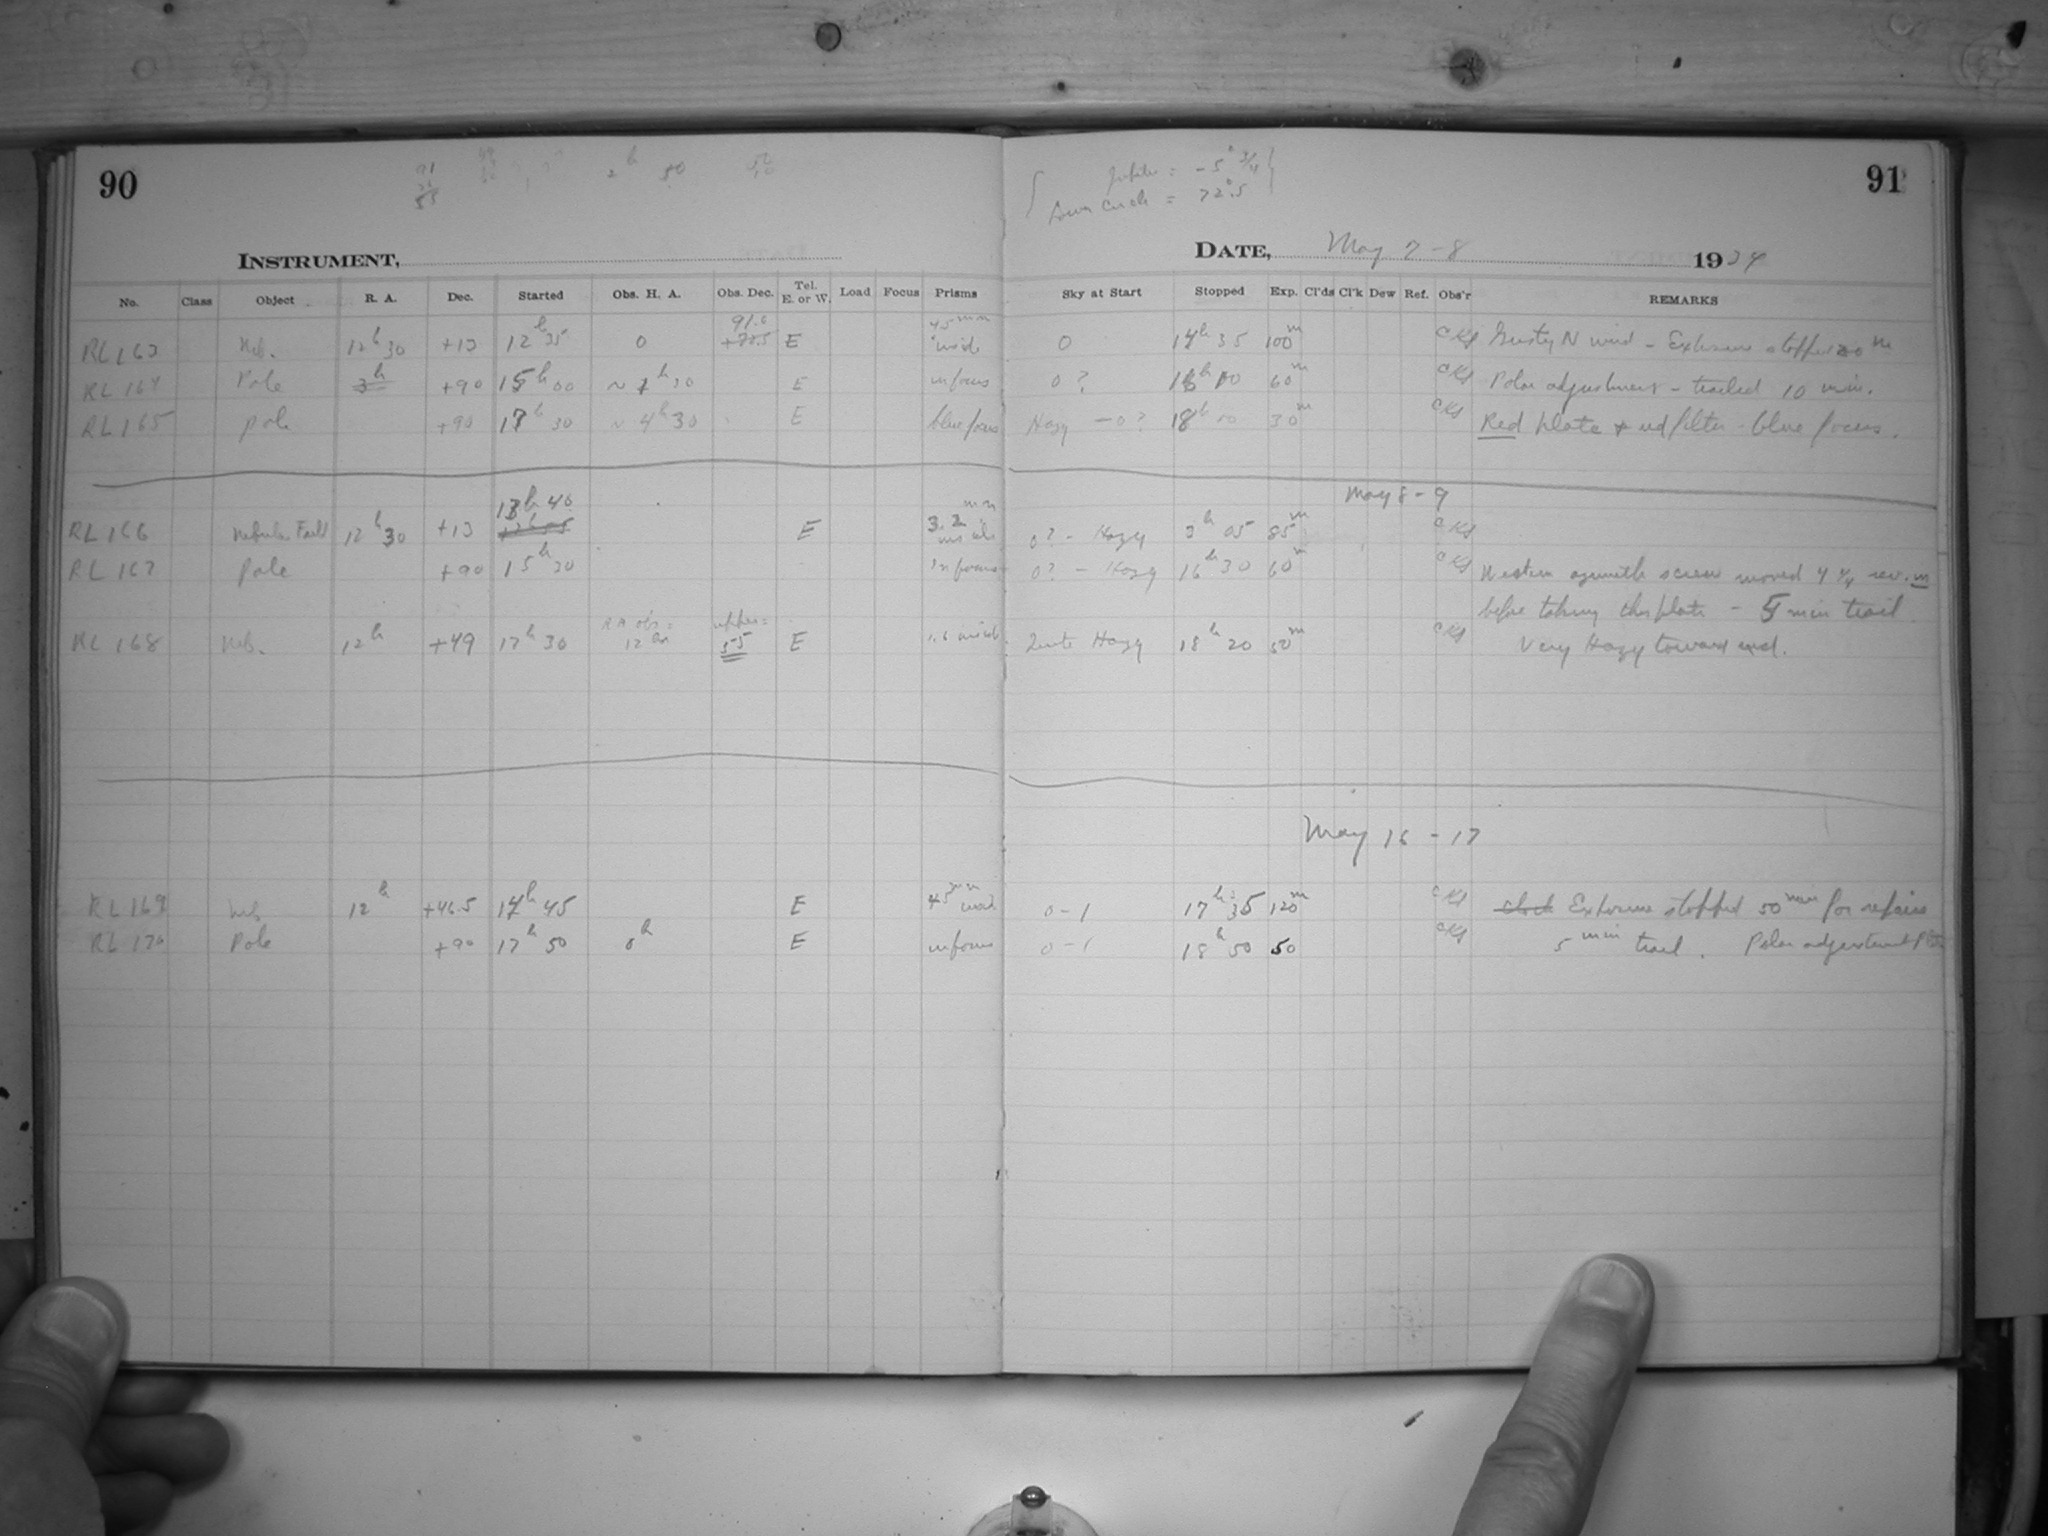 90
2h 50
Jupiter = -5° 3/4
Down Circle = 72°.5
91
INSTRUMENT,
DATE, May 7-8 1934
No. Class Object R. A. Dec. Started Obs. H. A. Obs. Dec. Tel. E. or W. Load Focus Prisms Sky at Start Stopped Exp. Cl'ds Cl'k Dew Ref. Obs'r REMARKS
RL 163 Neb. 12h 30 +13 12h 35 0 91.0 E inside 0 14h 35 100m CKS Gusty N wind - Exposure stopped 20m
RL 164 Pole 3h +90 15h 00 ~ 1h 30 E in focus 0? 16h 10 60m CKS Polar adjustment - trailed 10 min.
RL 165 pole +90 17h 30 ~ 4h 30 E blue focus Hazy - 0? 18h 00 30m CKS Red plate + red filter - blue focus.
May 8 - 9
13h 40
RL 166 Nebular Field 12h 30 +13 E 3.2 mm inside 0? - Hazy 3h 05 85m CKS
RL 167 Pole +90 15h 30 In focus 0? - Hazy 16h 30 60m CKS Western azimuth screw moved 4 1/4 rev. in
before taking this plate - 5 min trail
RL 168 Neb. 12h +49 17h 30 RA obs = 12h upper = 55 E 1.6 inside Quite Hazy 18h 20 50m CKS Very Hazy toward end.
May 16 - 17
RL 169 Neb 12h +46.5 14h 45 E 45 mm inside 0-1 17h 35 120m CKS clock Exposure stopped 50 min for repairs
RL 170 Pole +90 17h 50 0h E in focus 0-1 18h 50 50 CKS 5 min trail. Polar adjustment